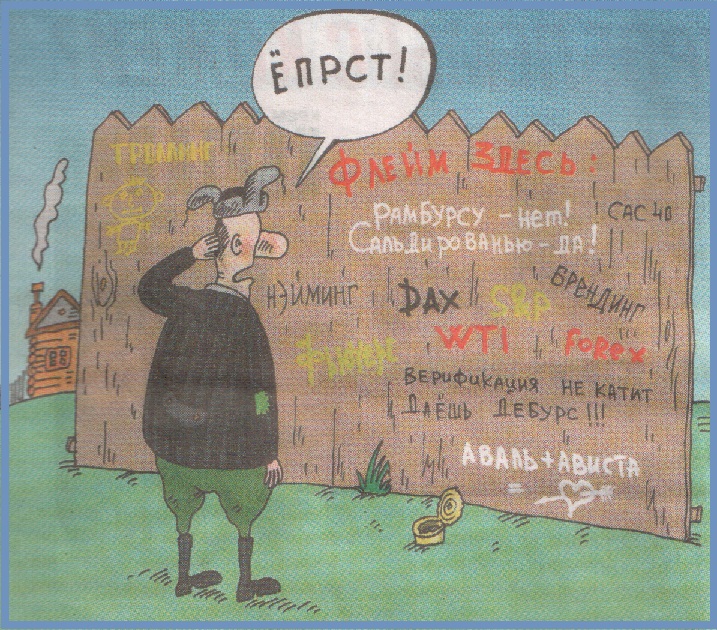 ЁПРСТ!
ТРЕЙЛИНГ
ФЛЕЙМ ЗДЕСЬ:
РАМБУРСУ - нет!
САЛЬДИРОВАНЬЮ - ДА!
CAC 40
НЭЙМИНГ
DAX
S&P
БРЕНДИНГ
WTI
FOREX
ВЕРИФИКАЦИЯ НЕ КАТИТ
ДАЁШЬ ДЕБУРС!!!
АВАЛЬ+АВИСТА
=